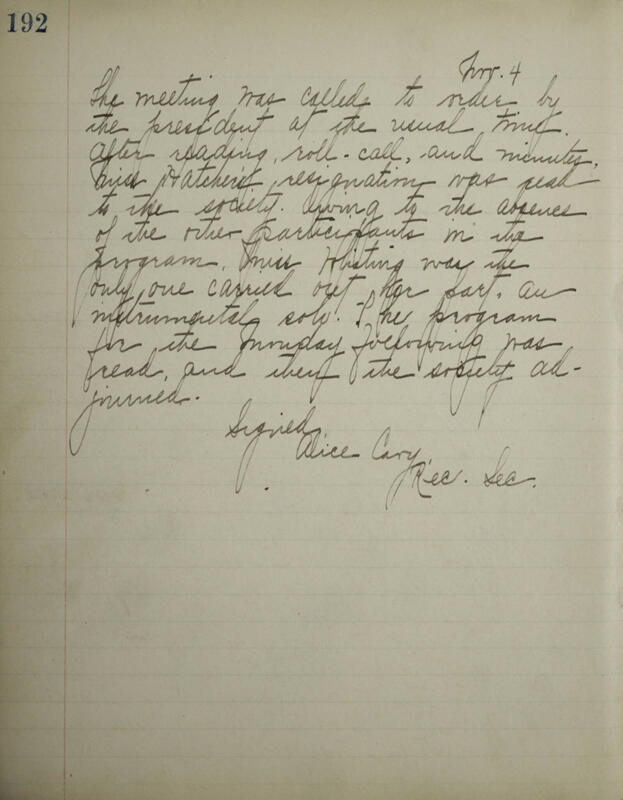 192
Nov. 4
The meeting was called to order by
the president at the usual time.
After reading, roll-call, and minutes,
Miss resignation was read
to the society. Owing to the absence
of the other participants in the
program, Miss was the
only one carried out her part, an
instrumental solo. The program
for the Monday following was
read, and then the society ad-
journed.
Signed,
Alice Cary,
Rec. Sec.